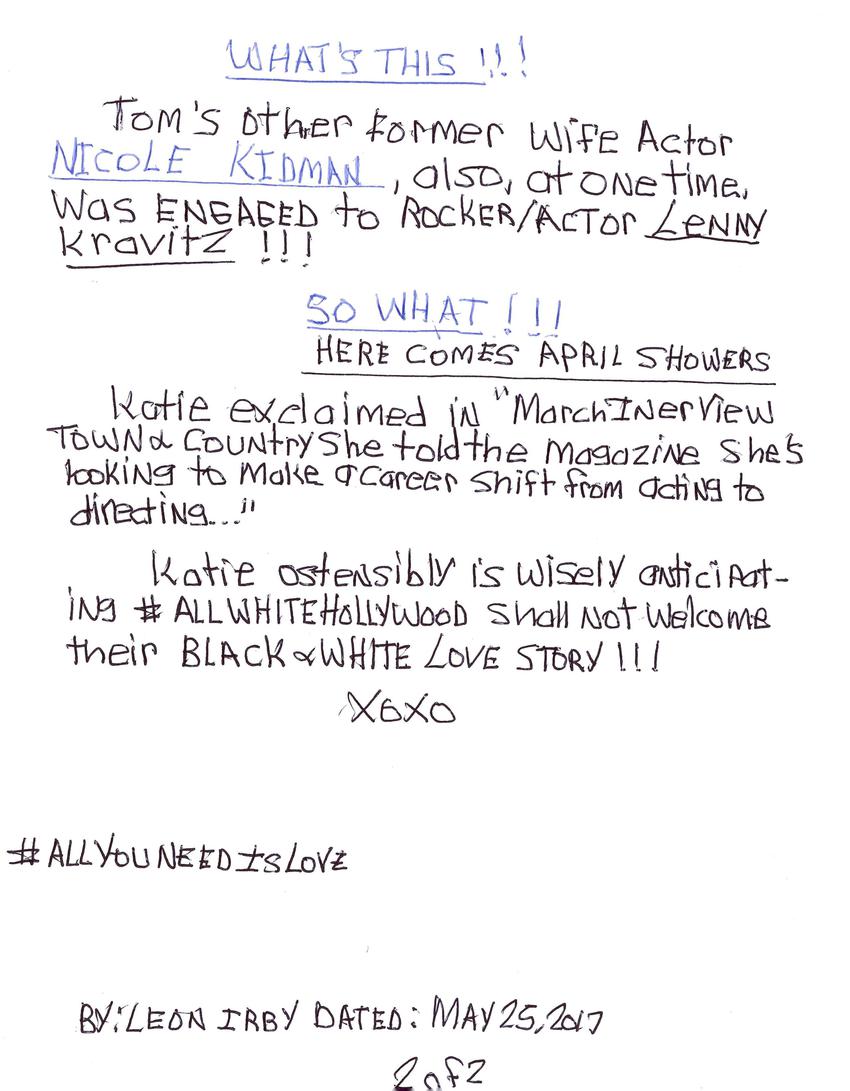 WHAT'S THIS !!!
Tom's other former Wife Actor
NICOLE KIDMAN, also, at one time,
Was ENGAGED to ROCKER/ACTOR LeNNY
Kravitz !!!
SO WHAT !!!
HERE COMES APRIL SHOWERS
Katie exclaimed in "March INerView
TOWN & COUNTRY She told the magazine She's
looking to make a career shift from acting to
directing..."
Katie ostensibly is wisely anticipat-
ing # ALLWHITEHOLLYWOOD shall not welcome
their BLACK & WHITE LOVE STORY !!!
XOXO
# ALLYOUNEEDISLOVE
BY: LEON IRBY DATED: MAY 25, 2017
2 of 2